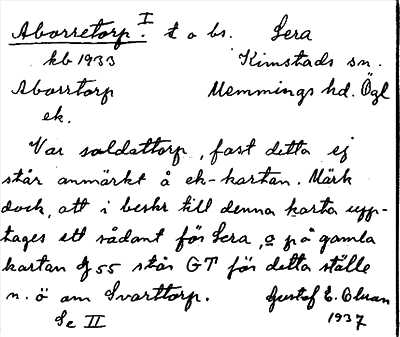 Aborretorp.I t o bs. Sera
kb 1933 Kimstads sn.
Aborrtorp Memmings hd. Ögl
ek.
Var soldattorp, fast detta ej
står anmärkt å ek-kartan. Märk
dock, att i beskr till denna karta upp-
tages ett sådant för Sera, o på gamla
kartan G 55 står GT för detta ställe
n. ö om Svarttorp. Gustaf E. Olsson
Se II 1937